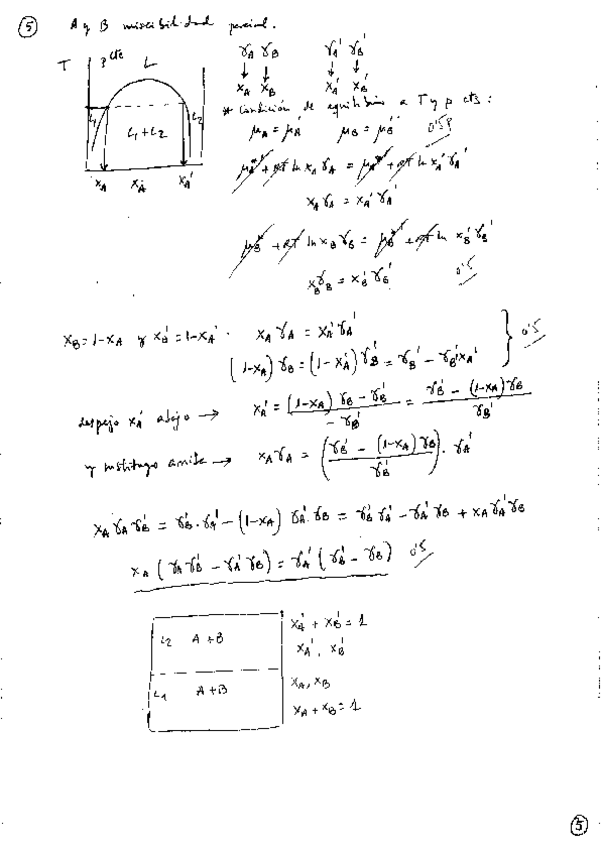 5 A y B miscibilidad parcial.
T p cte L
γA γB γA' γB'
↓ ↓ ↓ ↓
xA xB xA' xB'
* Condición de equilibrio a T y p ctes:
L1 L1+L2 L2
μA = μA' μB = μB' 0'5
xA xA xA'
μA* + RT ln xA γA = μA* + RT ln xA' γA'
xA γA = xA' γA'
μB* + RT ln xB γB = μB* + RT ln xB' γB'
xB γB = xB' γB' 0'5
xB = 1-xA y xB' = 1-xA' . xA γA = xA' γA'
(1-xA) γB = (1-xA') γB' = γB' - γB' xA' } 0'5
despejo xA' abajo → xA' = ((1-xA) γB - γB') / (- γB') = (γB' - (1-xA) γB) / γB'
y sustituyo arriba → xA γA = ((γB' - (1-xA) γB) / γB') . γA'
xA γA γB' = γB' . γA' - (1-xA) γA' . γB = γB' γA' - γA' γB + xA γA' γB
xA (γA γB' - γA' γB) = γA' (γB' - γB) 0'5
L2 A+B xA' + xB' = 1
xA', xB'
L1 A+B xA, xB
xA + xB = 1
5